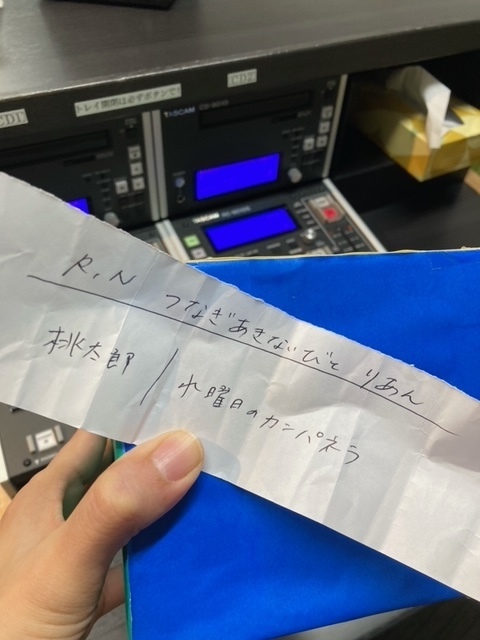 CD1
トレイ開閉は必ずボタンで!
CD2
TASCAM
R.N つなぎあきないびと りあん
桃太郎 / 水曜日のカンパネラ